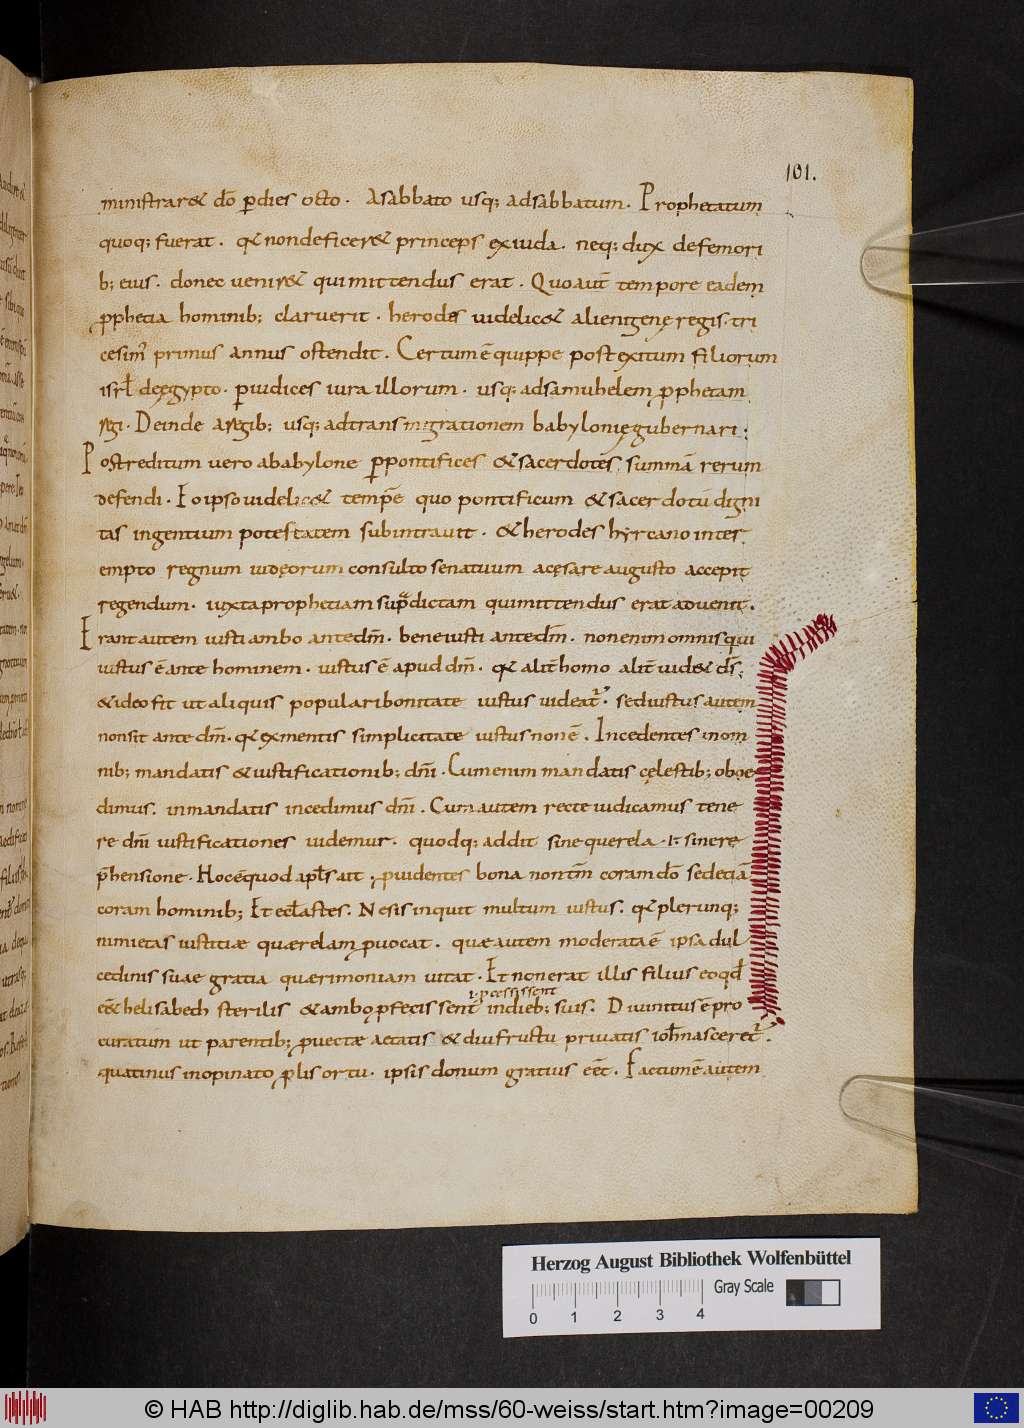 101.
ministrar& dō p̱dies octo. Asabbato usq; adsabbatum. Prophetatum
quoq; fuerat. qđ nondeficer& princeps exiuda. neq; dux defemori
b; eius. donec uenir& quimittendus erat. Quoaut̄ tempore eadem
p̱phetia hominib; claruerit. herodes uidelic& alienigenę regis. tri
cesim᾽ primus annus ostendit. Certumē quippe postexitum filiorum
isrł deęgypto. p̱iudices iura illorum. usq; adsamuhelem p̱phetam
regi. Deinde aregib; usq; adtransmigrationem babylonię gubernari.
Postreditum uero ababylone p̱pontifices &sacerdotes, summā rerum
defendi. Eoipso uidelic& temp̄e quo pontificum &sacerdotū digni
tas ingentium potestatem subintrauit. &herodes hyrcano inter
empto regnum iudęorum consulto senatuum acęsare augusto accepit
regendum. iuxtaprophetiam sup̄dictam quimittendus erat aduenit.
Erantautem iusti ambo antedm̄. bene iusti antedm̄. nonenim omnis qui
iustus ē ante hominem. iustus ē apuddm̄. qđ alit̄ homo alit̄ uid& ds̄;
&ideo fit ut aliquis popularibonitate iustus uideat᾽. sediustus autem
nonsit ante dm̄. qđ exmentis simplicitate iustus nonē. Incedentes inom
nib; mandatis &iustificationib; dn̄i. Cumenim mandatis cęlestib; oboe
dimus. inmandatis incedimus dn̄i. Cum autem recte iudicamus tene
re dn̄i iustificationes uidemur. quodq; addit sine querela. i. sinere
p̄hensione. Hocē quod apłs ait, p̱uidentes bona nontm̄ coram dō sedetiā
coram hominib; Et eccłastes. Nesis inquit multum iustus. qđ plerunq;
nimietas iustitiæ quærelam p̱uocat. quæautem moderata ē ipsa dul
cedinis suae gratia quærimoniam uitat. Et nonerat illis filius eoqđ
eēt helisabeth sterilis &ambo p̱fecissent indieb; suis. Diuinitus ē pro
i. p̱cessissent
curatum ut parentib; p̱uectæ aetatis &diu fructu priuatis ioh̄ nasceret᾽.
quatinus inopinato p̱lis ortu. ipsis donum gratius eēt. Factumē autem
Herzog August Bibliothek Wolfenbüttel
0 1 2 3 4 Gray Scale
© HAB http://diglib.hab.de/mss/60-weiss/start.htm?image=00209